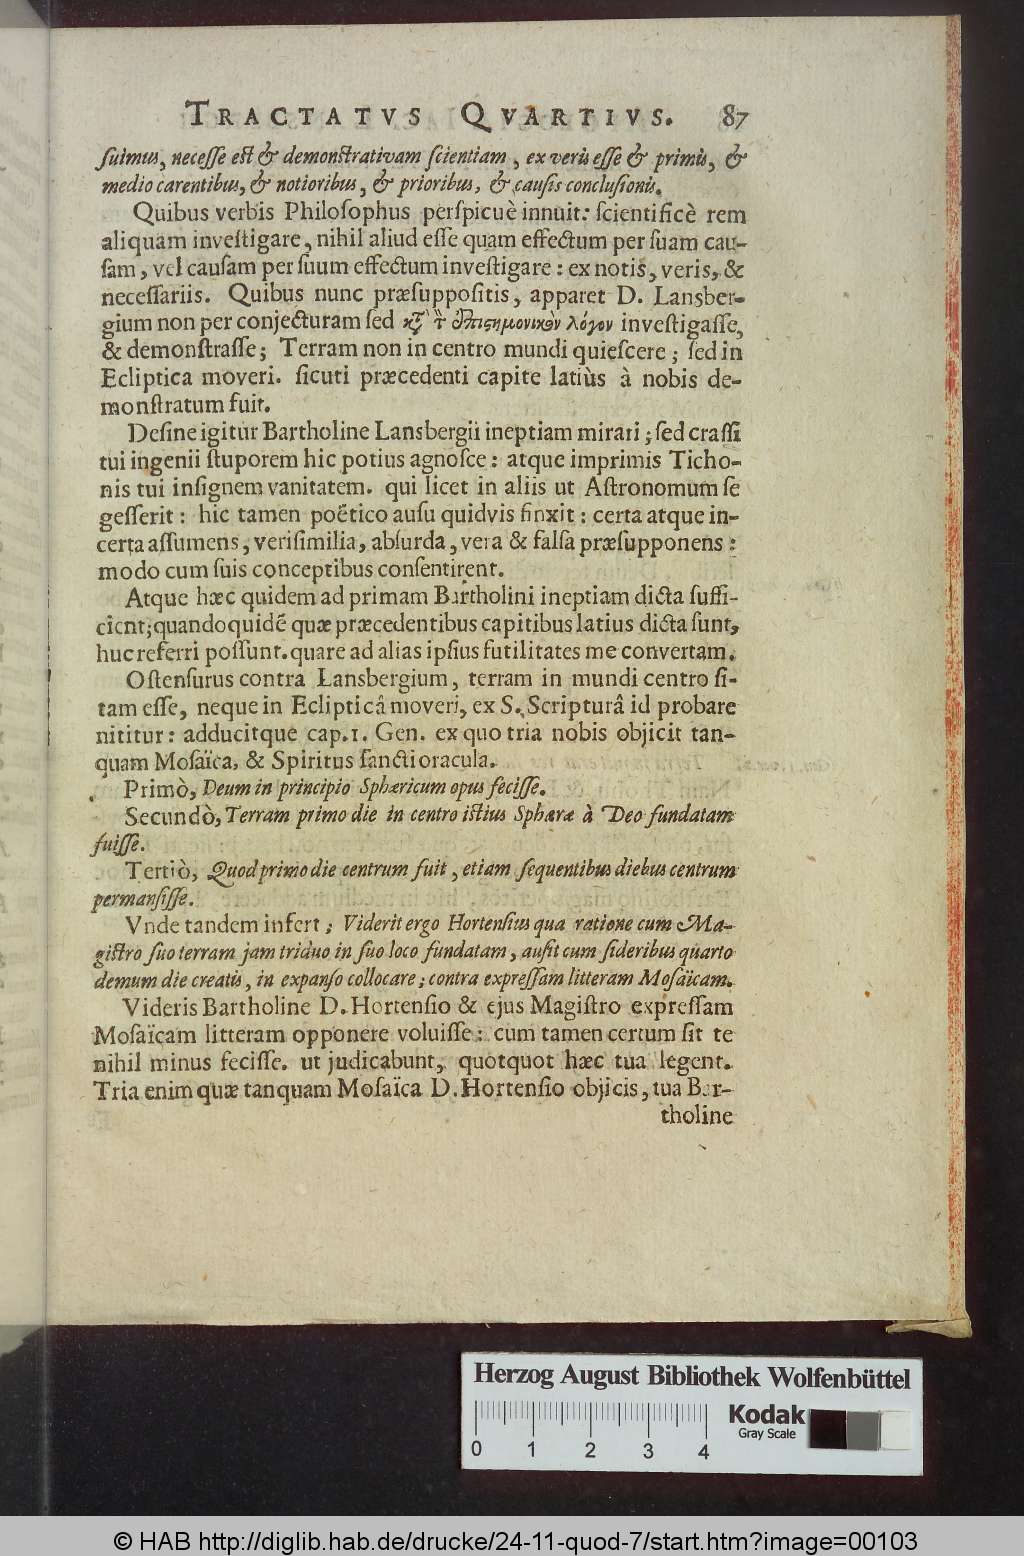 TRACTATVS QVARTIVS. 87
ſuimus, neceſſe eſt & demonſtrativam ſcientiam, ex veris eſſe & primis, &
medio carentibus, & notioribus, & prioribus, & cauſis concluſionis.
Quibus verbis Philoſophus perſpicuè innuit: ſcientificè rem
aliquam inveſtigare, nihil aliud eſſe quam effectum per ſuam cau-
ſam, vel cauſam per ſuum effectum inveſtigare: ex notis, veris, &
neceſſariis. Quibus nunc præſuppoſitis, apparet D. Lansber-
gium non per conjecturam ſed κτ̀ τ̀ ἐπιϛημονικὸν λόγον inveſtigaſſe,
& demonſtraſſe; Terram non in centro mundi quieſcere; ſed in
Ecliptica moveri. ſicuti præcedenti capite latiùs à nobis de-
monſtratum fuit.
Deſine igitur Bartholine Lansbergii ineptiam mirari; ſed craſſi
tui ingenii ſtuporem hic potius agnoſce: atque imprimis Ticho-
nis tui inſignem vanitatem. qui licet in aliis ut Aſtronomum ſe
geſſerit: hic tamen poëtico auſu quidvis finxit: certa atque in-
certa aſſumens, veriſimilia, abſurda, vera & falſa præſupponens:
modo cum ſuis conceptibus conſentirent.
Atque hæc quidem ad primam Bartholini ineptiam dicta ſuffi-
cient; quandoquidẽ quæ præcedentibus capitibus latius dicta ſunt,
huc referri poſſunt. quare ad alias ipſius futilitates me convertam.
Oſtenſurus contra Lansbergium, terram in mundi centro ſi-
tam eſſe, neque in Eclipticâ moveri, ex S. Scripturâ id probare
nititur: adducitque cap. 1. Gen. ex quo tria nobis objicit tan-
quam Moſaïca, & Spiritus ſancti oracula.
Primò, Deum in principio Sphæricum opus feciſſe.
Secundò, Terram primo die in centro iſtius Sphæræ à Deo fundatam
fuiſſe.
Tertiò, Quod primo die centrum fuit, etiam ſequentibus diebus centrum
permanſiſſe.
Vnde tandem infert; Viderit ergo Hortenſius qua ratione cum Ma-
giſtro ſuo terram jam triduo in ſuo loco fundatam, auſit cum ſideribus quarto
demum die creatis, in expanſo collocare; contra expreſſam litteram Moſaïcam.
Videris Bartholine D. Hortenſio & ejus Magiſtro expreſſam
Moſaïcam litteram opponere voluiſſe: cum tamen certum ſit te
nihil minus feciſſe. ut judicabunt, quotquot hæc tua legent.
Tria enim quæ tanquam Moſaïca D. Hortenſio objicis, tua Bar-
tholine
Herzog August Bibliothek Wolfenbüttel
Kodak
Gray Scale
0 1 2 3 4
© HAB http://diglib.hab.de/drucke/24-11-quod-7/start.htm?image=00103